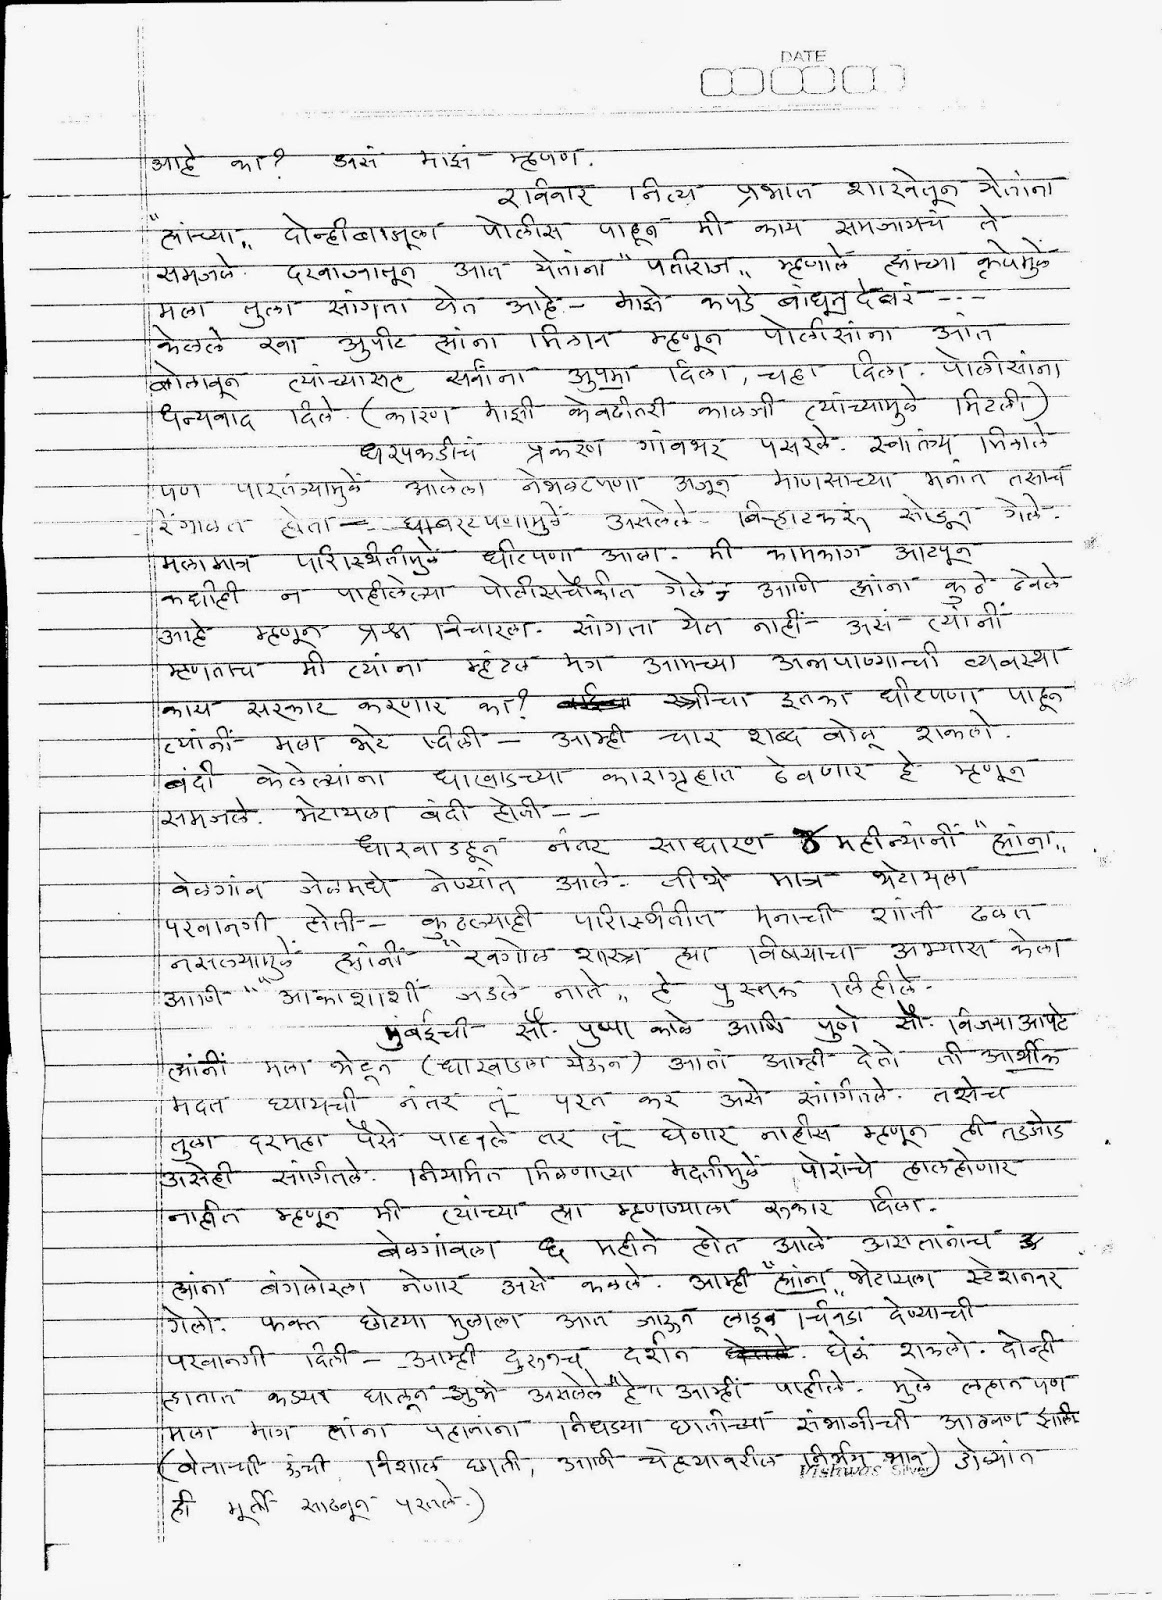 DATE
आहे का? असं माझं म्हणणं.
रविवार नित्य प्रभात शाखेतून येतांना
"ह्यांच्या,, दोन्हीबाजूला पोलीस पाहून मी काय समजायचं ते
समजले. दरवाज्यातून आत येतांना "पतीराज,, म्हणाले ह्यांच्या कृपेमुळे
मला तुला सांगता येत आहे - माझे कपडे बांधून देबरं ---
केलेले रवा उपीट ह्यांना मिळावं म्हणून पोलीसांना आंत
बोलावून त्यांच्यासह सर्वांना उपमा दिला, चहा दिला. पोलीसांना
धन्यवाद दिले (कारण माझी केवढीतरी काळजी त्यांच्यामुळे मिटली)
धरपकडीचं प्रकरण गांवभर पसरले. स्वातंत्र्य मिळाले
पण पारतंत्र्यामुळें आलेला नेभळटपणा अजून माणसाच्या मनांत तसाच
रेंगाळत होता - घाबरटपणामुळें असलेले बिऱ्हाटकरू सोडून गेले.
मलामात्र परिस्थितीमुळे धीटपणा आला. मी कामकाग आटपून
कधीही न पाहीलेल्या पोलीसचौकीत गेले - आणि ह्यांना कुठे ठेवले
आहे म्हणून प्रश्न विचारला. सांगता येत नाहीं - असं त्यांनीं
म्हणताच मी त्यांना म्हंटलं मग आमच्या अन्नपाण्याची व्यवस्था
काय सरकार करणार का? स्त्रीचा इतका धीटपणा पाहून
त्यांनीं मला भेट दिली - आम्ही चार शब्द बोलू शकलो.
बंदी केलेल्यांना धारवाडच्या कारागृहात ठेवणार हे म्हणून
समजले. भेटायला बंदी होती --
धारवाडहून नंतर साधारण ४ महीन्यांनीं "ह्यांना,,
बेळगांव जेलमधे नेण्यांत आले. तीथे मात्र भेटायला
परवानगी होती - कुठल्याही परिस्थितीत मनाची शांती ढळत
नसल्यामुळें ह्यांनीं "खगोल शास्त्र ह्या विषयाचा अभ्यास केला
आणि "आकाशाशीं जडले नाते,, हे पुस्तक लिहीले.
मुंबईची सौ. पुष्पा काळे आणि पुणे सौ. विजया आपटे
ह्यांनीं मला भेटून (धारवाडला येऊन) आतां आम्ही देतो ती आर्थीक
मदत घ्यायची नंतर तूं परत कर असे सांगितले. तसेच
तुला दरमहा पैसे पाठवले तर तूं घेणार नाहीस म्हणून ही तडजोड
असेही सांगितले. नियमित मिळणाऱ्या मदतीमुळें पोरांचे हालहोणार
नाहीत म्हणून मी त्यांच्या ह्या म्हणण्याला रुकार दिला.
बेळगांवला ६ महीने होत आले असतानाच
ह्यांना बंगलोरला नेणार असे कळले. आम्ही "ह्यांना,, भेटायला स्टेशनवर
गेलो. फक्त छोट्या मुलाला आत जाऊन लाडू चिवडा देण्याची
परवानगी दिली - आम्ही दुरूनच दर्शन घेऊं शकलो. दोन्ही
हातात कड्या घालून उभे असलेले "हे" आम्हीं पाहीले. मुले लहान पण
मला मात्र ह्यांना पहातांना निधड्या छातीच्या संभाजीची आठवण झाली
(बेताची उंची, विशाल छाती, आणि चेहऱ्यावरील निर्भय भाव) डोळ्यांत
ही मूर्ती साठवून परतले.)
Vishwas Silver